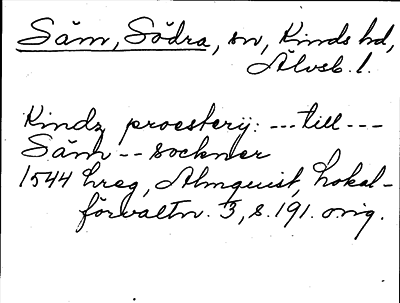 Säm, Södra, sn, Kinds hd,
Älvsb. l.
Kindz proesterij: --- till ---
Säm -- sockner
1544 hreg, Almquist, Lokal-
förvaltn. 3, s. 191. orig.